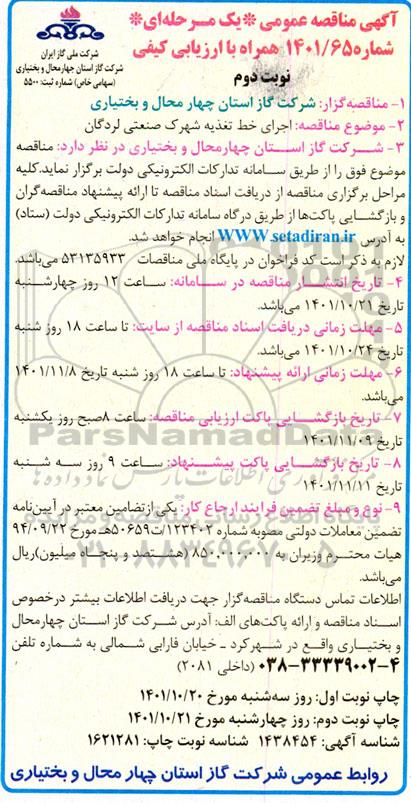 آگهی مناقصه عمومی *یک مرحله‌ای*
شماره ۱۴۰۱/۶۵ همراه با ارزیابی کیفی
شرکت ملی گاز ایران
شرکت گاز استان چهارمحال و بختیاری
(سهامی خاص) شماره ثبت: ۵۵۰۰
نوبت دوم
۱- مناقصه‌گزار: شرکت گاز استان چهار محال و بختیاری
۲- موضوع مناقصه: اجرای خط تغذیه شهرک صنعتی لردگان
۳- شرکت گاز استان چهارمحال و بختیاری در نظر دارد: مناقصه
موضوع فوق را از طریق سامانه تدارکات الکترونیکی دولت برگزار نماید.کلیه
مراحل برگزاری مناقصه از دریافت اسناد مناقصه تا ارائه پیشنهاد مناقصه‌گران
و بازگشایی پاکت‌ها از طریق درگاه سامانه تدارکات الکترونیکی دولت (ستاد)
به آدرس WWW.setadiran.ir انجام خواهد شد.
لازم به ذکر است کد فراخوان در پایگاه ملی مناقصات ۵۳۱۳۵۹۳۳ می‌باشد.
۴- تاریخ انتشار مناقصه در سامانه: ساعت ۱۲ روز چهارشنبه
تاریخ ۱۴۰۱/۱۰/۲۱ می‌باشد.
۵- مهلت زمانی دریافت اسناد مناقصه از سایت: تا ساعت ۱۸ روز شنبه
تاریخ ۱۴۰۱/۱۰/۲۴ می‌باشد.
۶- مهلت زمانی ارائه پیشنهاد: تا ساعت ۱۸ روز شنبه تاریخ ۱۴۰۱/۱۱/۸
می‌باشد.
۷- تاریخ بازگشایی پاکت ارزیابی مناقصه: ساعت ۸صبح روز یکشنبه
تاریخ ۱۴۰۱/۱۱/۰۹
۸- تاریخ بازگشایی پاکت پیشنهاد: ساعت ۹ روز سه شنبه
تاریخ ۱۴۰۱/۱۱/۱۱
۹- نوع و مبلغ تضمین فرایند ارجاع کار: یکی از تضامین معتبر در آیین‌نامه
تضمین معاملات دولتی مصوبه شماره ۱۲۳۴۰۲/ت۵۰۶۵۹هـ مورخ ۹۴/۰۹/۲۲
هیات محترم وزیران به ۸۵۰۰۰۰۰۰۰ (هشتصد و پنجاه میلیون)ریال
می‌باشد.
اطلاعات تماس دستگاه مناقصه‌گزار جهت دریافت اطلاعات بیشتر درخصوص
اسناد مناقصه و ارائه پاکت‌های الف: آدرس شرکت گاز استان چهارمحال
و بختیاری واقع در شهرکرد ـ خیابان فارابی شمالی به شماره تلفن
۰۳۸-۳۳۳۳۹۰۰۲-۴ (داخلی ۲۰۸۱)
چاپ نوبت اول: روز سه‌شنبه مورخ ۱۴۰۱/۱۰/۲۰
چاپ نوبت دوم: روز چهارشنبه مورخ ۱۴۰۱/۱۰/۲۱
شناسه آگهی: ۱۴۳۸۴۵۴ شناسه نوبت چاپ: ۱۶۲۱۲۸۱
روابط عمومی شرکت گاز استان چهار محال و بختیاری
ParsNamadData
۰۲۱-۸۸۳۴۹۶۷۰-۵